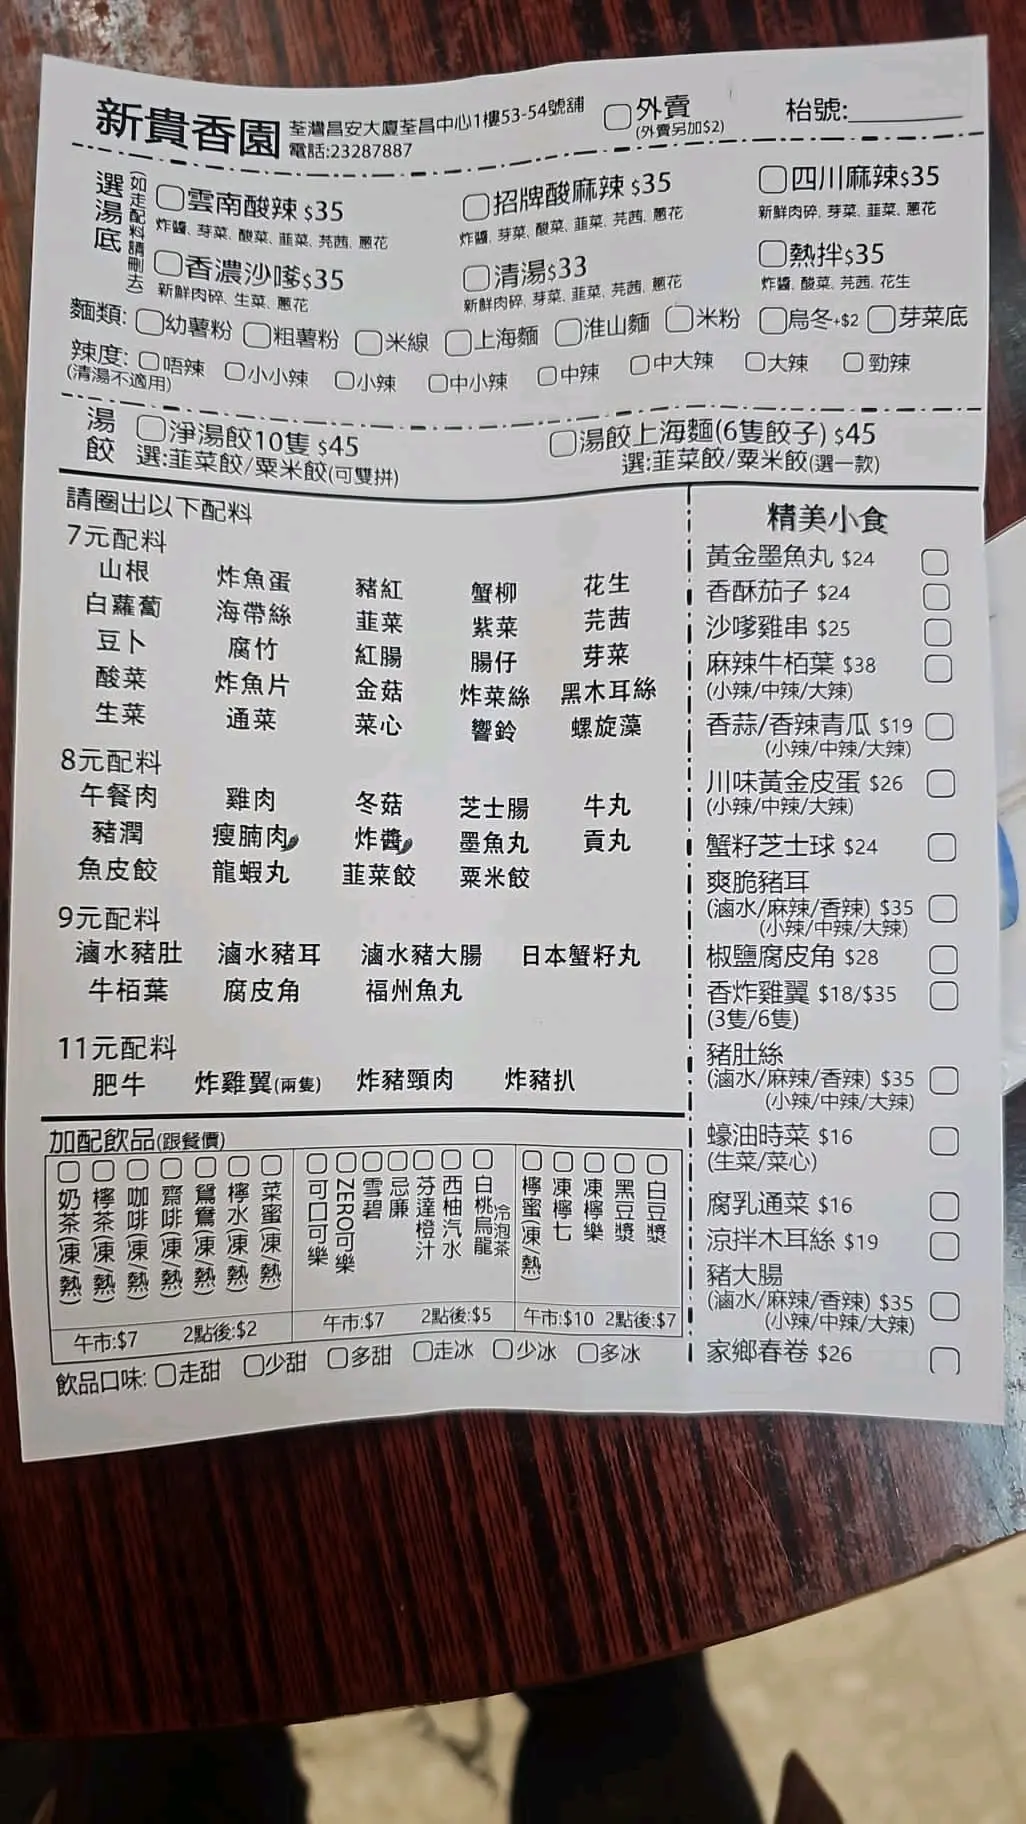 新貴香園
荃灣昌安大廈荃昌中心1樓53-54號舖
電話:23287887
外賣
(外賣另加$2)
枱號:
選湯底
(如走配料請刪去)
雲南酸辣 $35
炸醬, 芽菜, 酸菜, 韮菜, 芫茜, 蔥花
招牌酸麻辣 $35
炸醬, 芽菜, 酸菜, 韮菜, 芫茜, 蔥花
四川麻辣$35
新鮮肉碎, 芽菜, 韮菜, 蔥花
香濃沙嗲$35
新鮮肉碎, 生菜, 蔥花
清湯$33
新鮮肉碎, 芽菜, 韮菜, 芫茜, 蔥花
熱拌$35
炸醬, 酸菜, 芫茜, 花生
麵類: 幼薯粉 粗薯粉 米線 上海麵 淮山麵 米粉 烏冬+$2 芽菜底
辣度: 唔辣 小小辣 小辣 中小辣 中辣 中大辣 大辣 勁辣
(清湯不適用)
湯餃
淨湯餃10隻 $45
選:韮菜餃/粟米餃(可雙拼)
湯餃上海麵(6隻餃子) $45
選:韮菜餃/粟米餃(選一款)
請圈出以下配料
7元配料
山根 炸魚蛋 豬紅 蟹柳 花生
白蘿蔔 海帶絲 韮菜 紫菜 芫茜
豆卜 腐竹 紅腸 腸仔 芽菜
酸菜 炸魚片 金菇 炸菜絲 黑木耳絲
生菜 通菜 菜心 響鈴 螺旋藻
8元配料
午餐肉 雞肉 冬菇 芝士腸 牛丸
豬潤 瘦腩肉 炸醬 墨魚丸 貢丸
魚皮餃 龍蝦丸 韮菜餃 粟米餃
9元配料
滷水豬肚 滷水豬耳 滷水豬大腸 日本蟹籽丸
牛栢葉 腐皮角 福州魚丸
11元配料
肥牛 炸雞翼(兩隻) 炸豬頸肉 炸豬扒
精美小食
黃金墨魚丸 $24
香酥茄子 $24
沙嗲雞串 $25
麻辣牛栢葉 $38
(小辣/中辣/大辣)
香蒜/香辣青瓜 $19
(小辣/中辣/大辣)
川味黃金皮蛋 $26
(小辣/中辣/大辣)
蟹籽芝士球 $24
爽脆豬耳
(滷水/麻辣/香辣) $35
(小辣/中辣/大辣)
椒鹽腐皮角 $28
香炸雞翼 $18/$35
(3隻/6隻)
豬肚絲
(滷水/麻辣/香辣) $35
(小辣/中辣/大辣)
蠔油時菜 $16
(生菜/菜心)
腐乳通菜 $16
涼拌木耳絲 $19
豬大腸
(滷水/麻辣/香辣) $35
(小辣/中辣/大辣)
家鄉春卷 $26
加配飲品(跟餐價)
奶茶(凍/熱)
檸茶(凍/熱)
咖啡(凍/熱)
齋啡(凍/熱)
鴛鴦(凍/熱)
檸水(凍/熱)
菜蜜(凍/熱)
午市:$7 2點後:$2
可口可樂
ZERO可樂
雪碧
忌廉
芬達橙汁
西柚汽水
白桃烏龍
冷泡茶
午市:$7 2點後:$5
檸蜜(凍/熱)
凍檸七
凍檸樂
黑豆漿
白豆漿
午市:$10 2點後:$7
飲品口味: 走甜 少甜 多甜 走冰 少冰 多冰